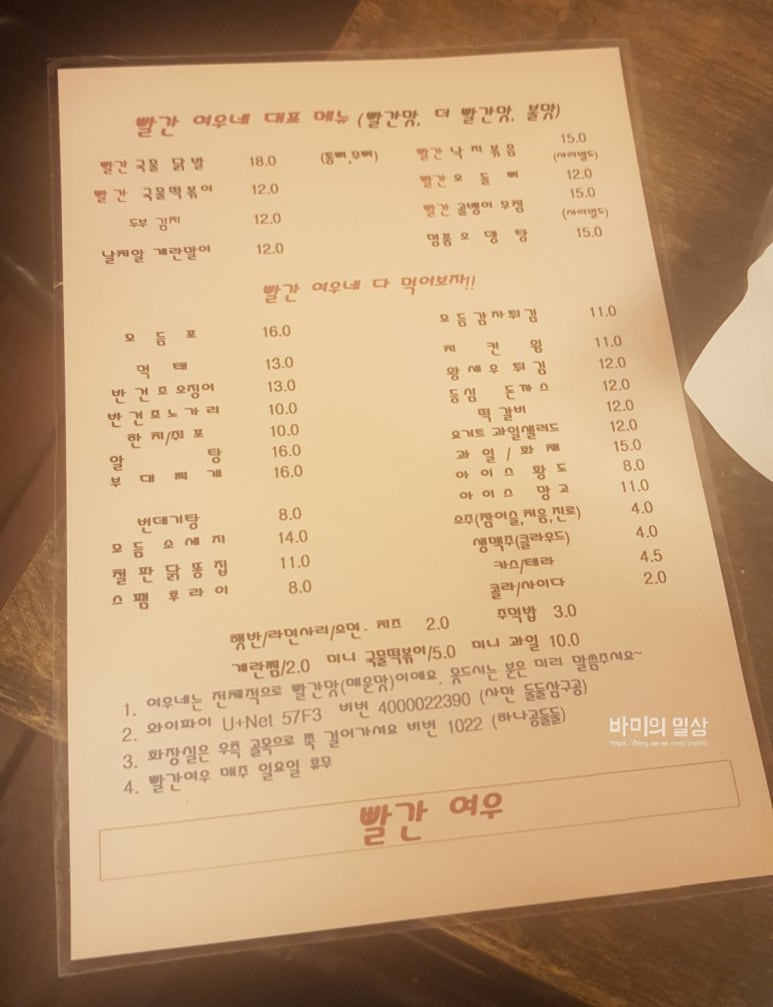 빨간 여우네 대표 메뉴 (빨간맛, 더 빨간맛, 불맛)
빨간 국물 닭발 18.0 (통뼈,무뼈)
빨간 국물떡볶이 12.0
두부 김치 12.0
날치알 계란말이 12.0
빨간 낙지볶음 15.0 (사리별도)
빨간 오돌뼈 12.0
빨간 골뱅이 무침 15.0 (사리별도)
명품 오뎅탕 15.0
빨간 여우네 다 먹어보자!!
모듬포 16.0
먹태 13.0
반건조오징어 13.0
반건조노가리 10.0
한치/쥐포 10.0
알탕 16.0
부대찌개 16.0
번데기탕 8.0
모듬소세지 14.0
철판닭똥집 11.0
스팸후라이 8.0
모듬감자튀김 11.0
치킨윙 11.0
왕새우튀김 12.0
등심 돈까스 12.0
떡갈비 12.0
요거트 과일샐러드 12.0
과일/화채 15.0
아이스 황도 8.0
아이스 망고 11.0
소주(참이슬,처음,진로) 4.0
생맥주(클라우드) 4.0
카스/테라 4.5
콜라/사이다 2.0
햇반/라면사리/소면. 치즈 2.0 주먹밥 3.0
계란찜/2.0 미니 국물떡볶이/5.0 미니 과일 10.0
1. 여우네는 전체적으로 빨간맛(매운맛)이에요. 못드시는 분은 미리 말씀주셔요~
2. 와이파이 U+Net 57F3 비번 4000022390 (사만 둘둘삼구공)
3. 화장실은 우측 골목으로 쭉 걸어가셔요 비번 1022 (하나공둘둘)
4. 빨간여우 매주 일요일 휴무
빨간 여우
바미의 일상